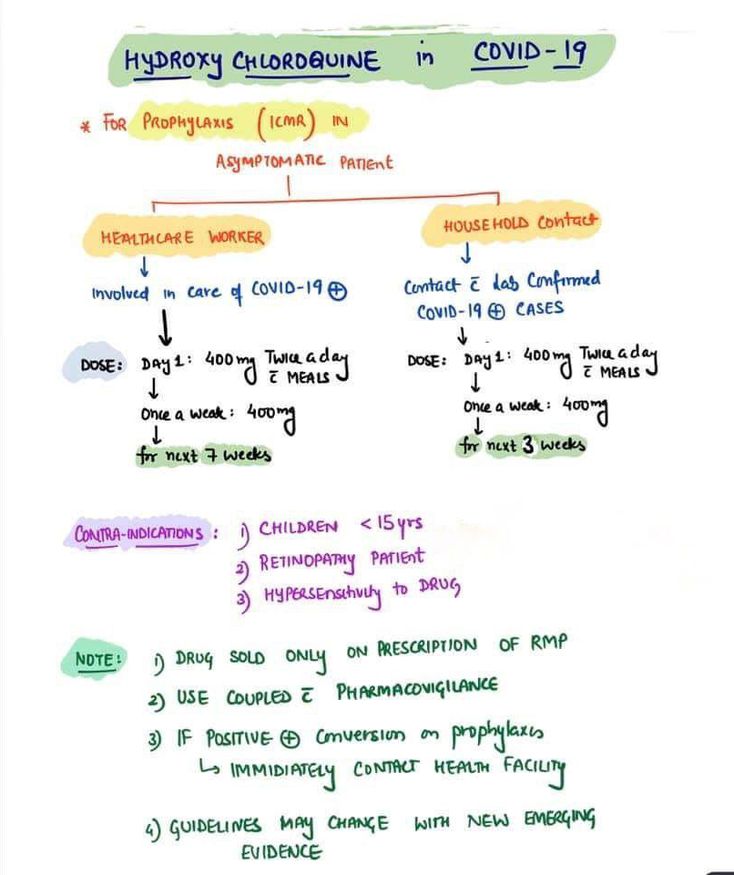 HYDROXY CHLOROQUINE in COVID-19
* FOR PROPHYLAXIS (ICMR) IN
ASYMPTOMATIC PATIENT
HEALTHCARE WORKER
Involved in care of COVID-19 ⊕
DOSE: DAY 1: 400 mg Twice a day
c̄ MEALS
Once a weak: 400mg
for next 7 weeks
HOUSEHOLD Contact
Contact c̄ Lab Confirmed
COVID-19 ⊕ CASES
DOSE: DAY 1: 400 mg Twice a day
c̄ MEALS
Once a weak: 400mg
for next 3 weeks
CONTRA-INDICATIONS: 1) CHILDREN <15 yrs
2) RETINOPATHY PATIENT
3) HYPERSENSITIVITY to DRUG
NOTE: 1) DRUG SOLD ONLY ON PRESCRIPTION OF RMP
2) USE COUPLED c̄ PHARMACOVIGILANCE
3) IF POSITIVE ⊕ Conversion on prophylaxis
↳ IMMIDIATELY CONTACT HEALTH FACILITY
4) GUIDELINES MAY CHANGE WITH NEW EMERGING
EVIDENCE